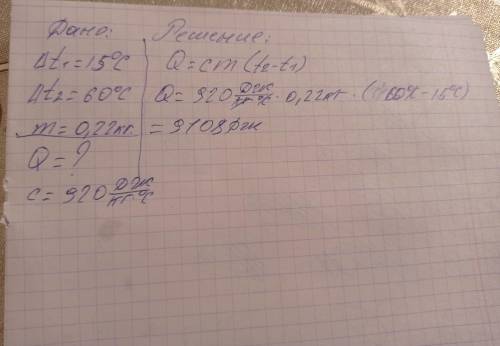 Дано:
Δt₁=15°C
Δt₂=60°C
m=0,22кг
Q=?
c=920 Дж/кг°C
Решение:
Q=cm(t₂-t₁)
Q=920 Дж/кг°C · 0,22кг · (60°C-15°C)
=9108Дж